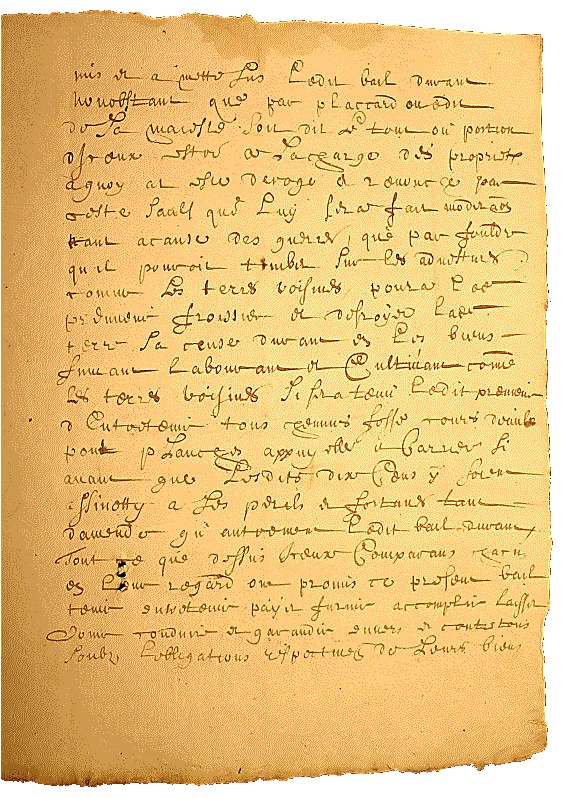 mis et a mettre sus Ledit bail durant
nonobstant que par placcard ou edit
de sa maieste soit dit le tout ou portion
d'Iceux estre a La charge des propriet
a quoy at este deroge et renonce par
ceste saulf que Luy sera fait moderaon
tant a cause des guerres, que par fouldre
qu'il pouroit tomber sur les advestures
comme les terres voisines, poura led
preneur froissier et desroyer lade
terre sa cense durant en Les biens
fumant Labourant et Cultivant comme
les terres voisines Si sera tenu Ledit preneur
d'Entretenir tous chemins fosse cours deauwe
pont planches appuyelles et barrier si
avant que Lesdits dix Cens y soient
a Les perils et fortunes tant
damende qu'autrement Ledit bail durant,
Tout ce que dessus Iceux Comparans chacun
en Leur regard ont promis ce present bail
tenir entretenir payer furnir accomplir laisser
Jouir conduire et garandir envers et contre tous
soubz Lobligations respectives de Leurs biens